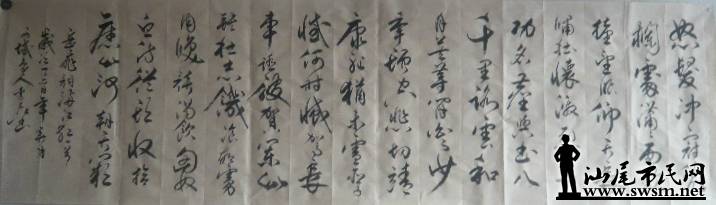 怒髮沖冠
欄處瀟雨
擡望眼仰天
嘯壯懷激
功名塵與土八
千里路雲和
月莫等閒白了少
年頭空悲切靖
康恥猶未雪
憾何時滅駕長
車踏破賀蘭山
缺壯志飢餐胡虜
肉笑談渴飲匈奴
血待從頭收拾
舊山河朝天闕
岳飛詞滿江紅
汕尾市民网
www.swsm.net